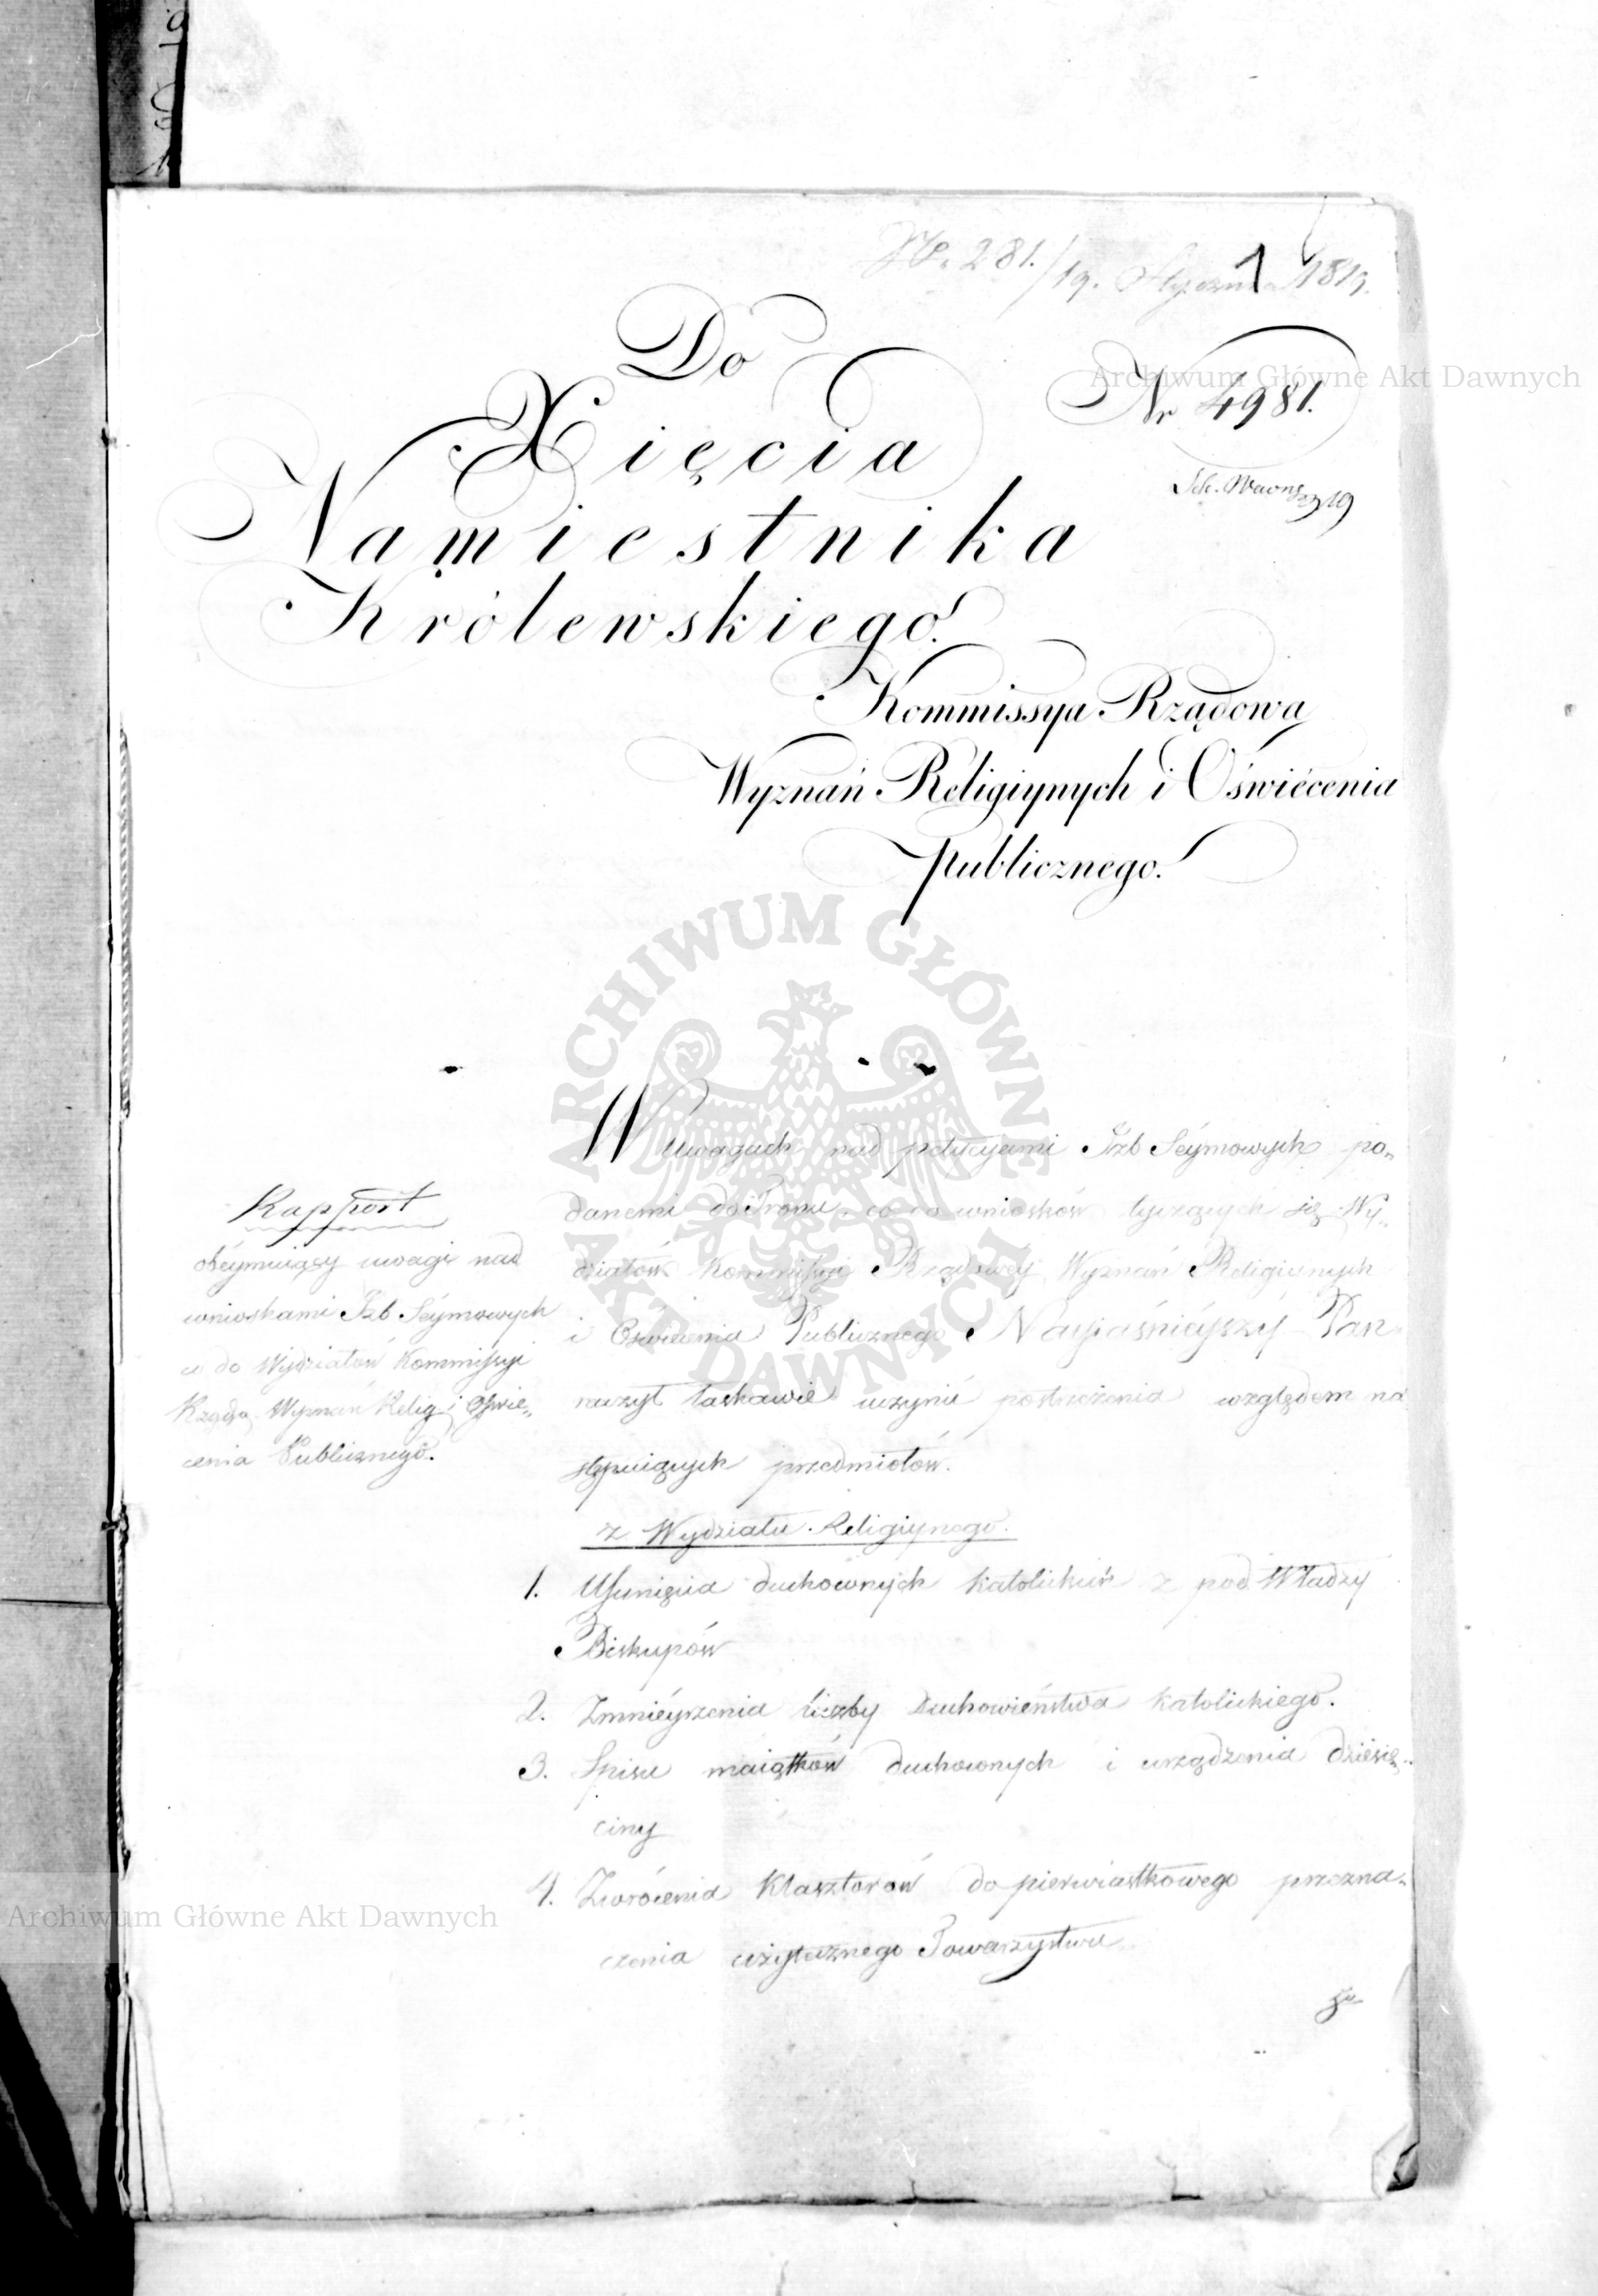 No. 281./19. Stycznia 1819.
1
Do
Xięcia
Namiestnika
Królewskiego.
Nr 4981.
Kommissya Rządowa
Wyznań Religiynych i Oświécenia
Publicznego.
W uwagach nad petycyami Izb Seymowych po„
danemi do Tronu, co do wniosków tyczących się Wy„
działów Kommissyi Rządowéy Wyznań Religiynych
i Oświecenia Publicznego, Nayiaśnieyszy Pan
raczył łaskawie uczynić postrzeżenia względem na
stępuiących przedmiotów.
Rapport
obeymuiący uwagi nad
wnioskami Izb Seymowych
co do Wydziałów Kommissyi
Rządo. Wyznań Relig. i Oświe„
cenia Publicznego.
z Wydziału Religiynego.
1. Usunięcia duchownych katolickich z pod Władzy
Biskupów
2. Zmnieyszenia liczby Duchowieństwa katolickiego.
3. Spisu maiątków duchownych i urządzenia dziesię„
ciny
4. Zwrócenia Klasztorów do pierwiastkowego przezna„
czenia użytecznego Towarzystwu
Archiwum Główne Akt Dawnych
ARCHIWUM GŁÓWNE AKT DAWNYCH
Archiwum Główne Akt Dawnych